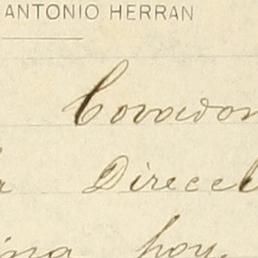 ANTONIO HERRAN
Covadon
Direcci
hoy